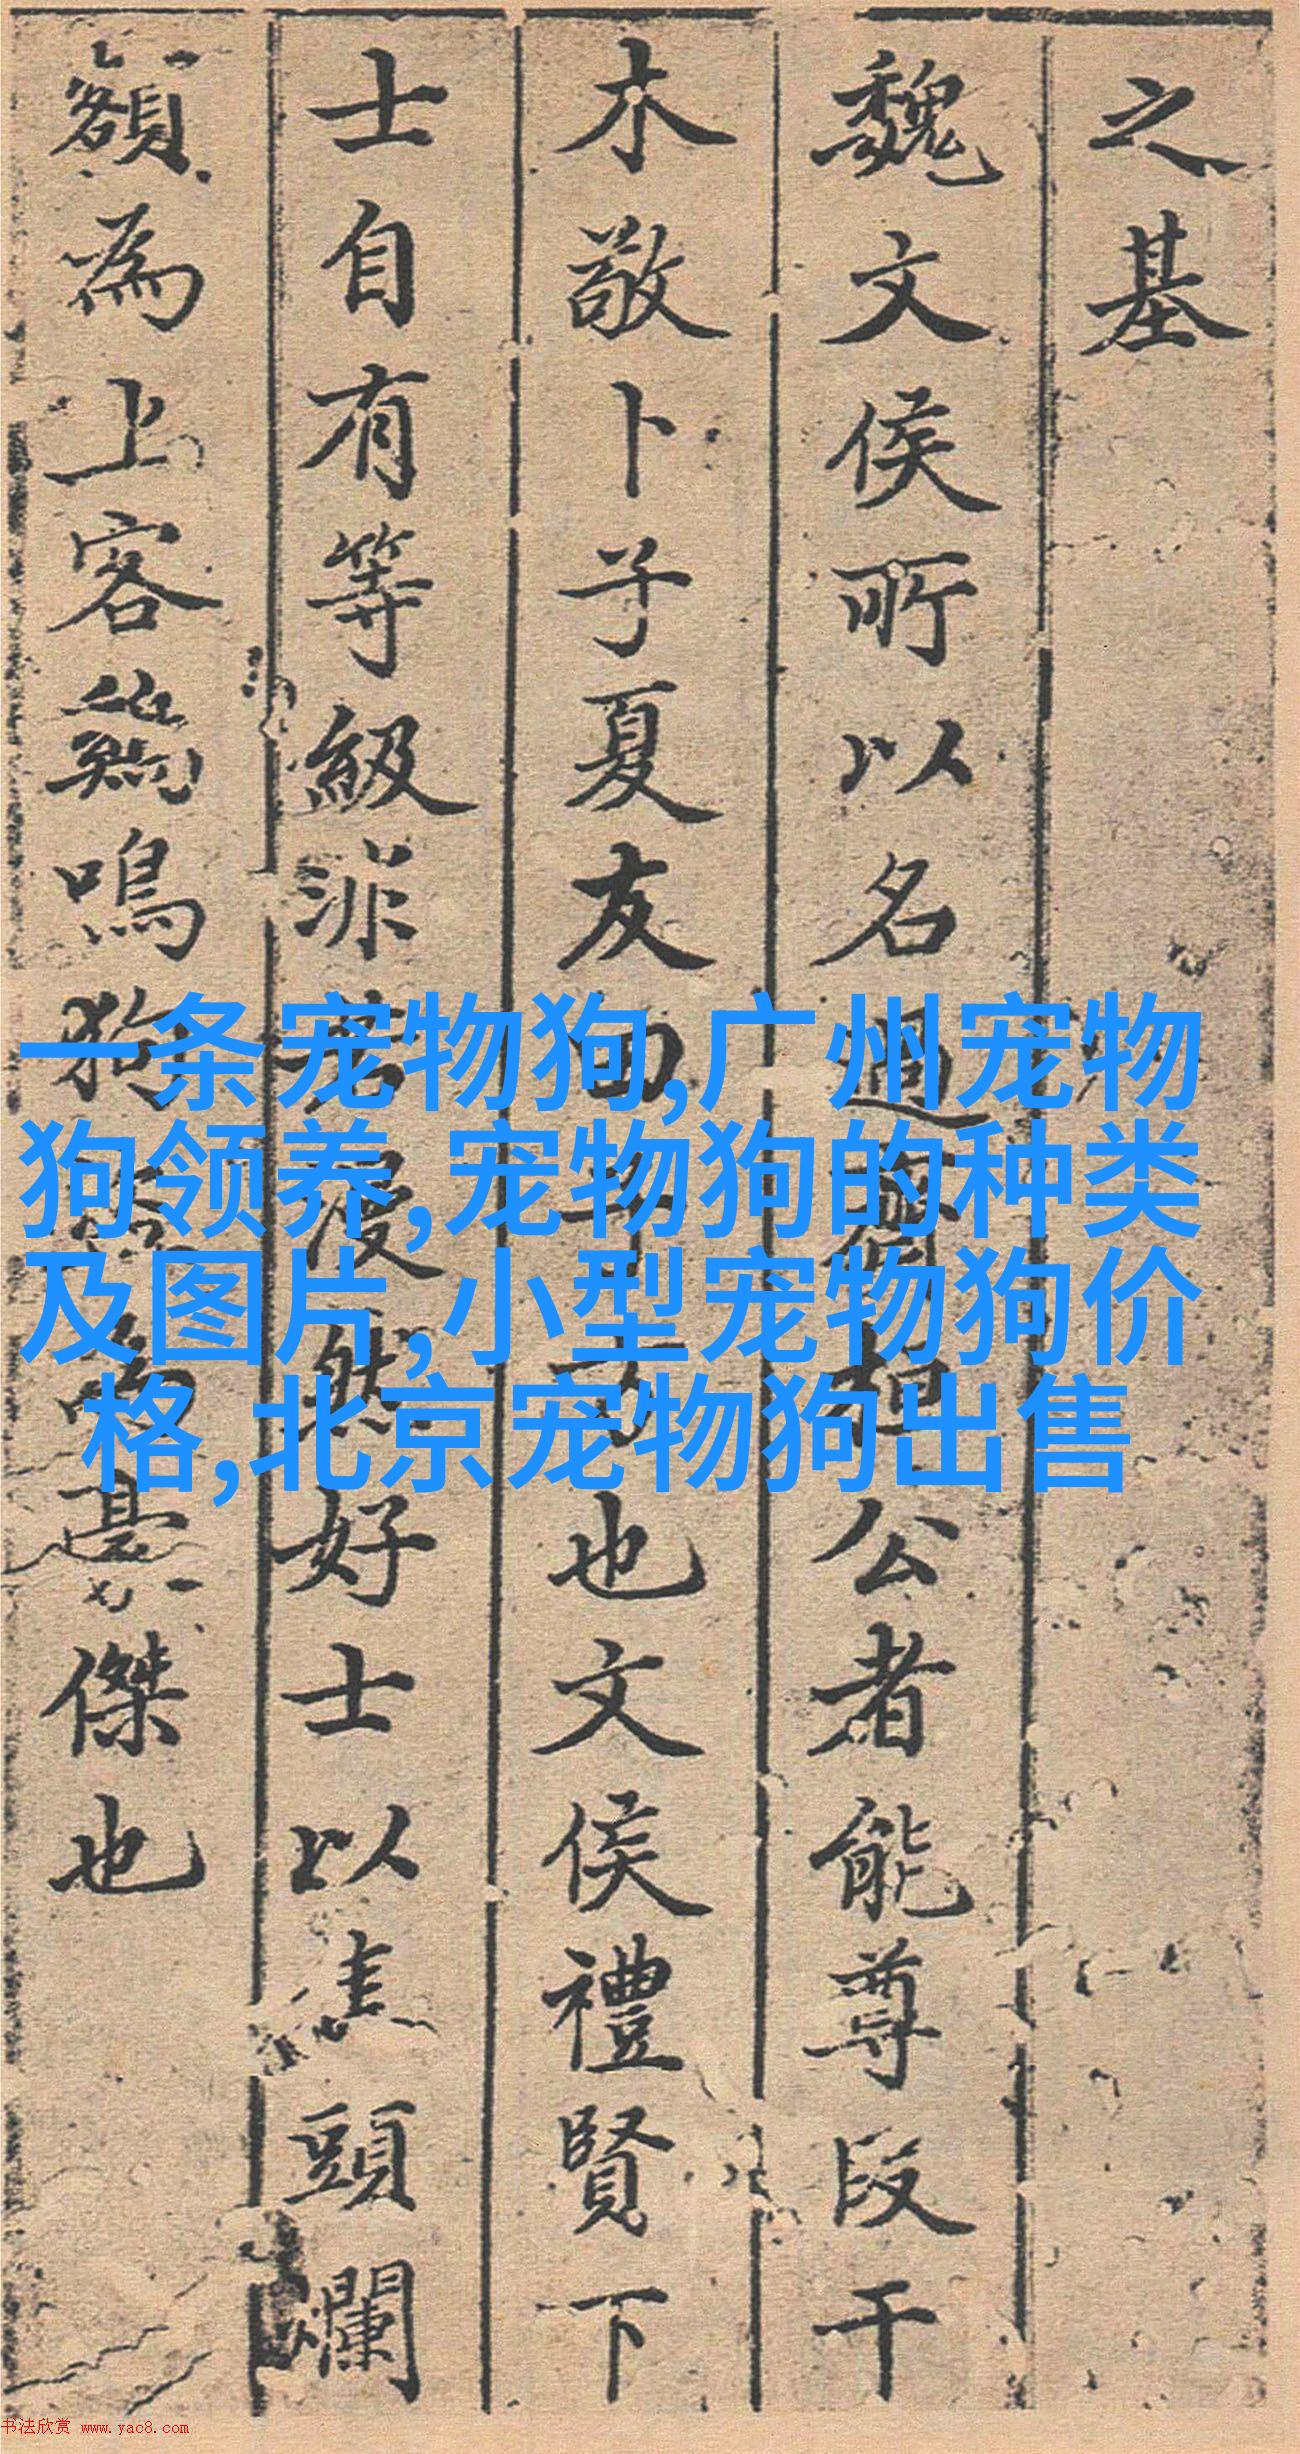 之基
魏文侯所以名過齊桓公者能尊段干
木敬卜子夏友田子方也文侯禮賢下
士自有等級非若漫然好士以焦頭爛
額為上客鷄鳴狗盜為豪傑也
一条宠物狗,广州宠物
狗领养,宠物狗的种类
及图片,小型宠物狗价
格,北京宠物狗出售
书法欣赏 www.yac8.com